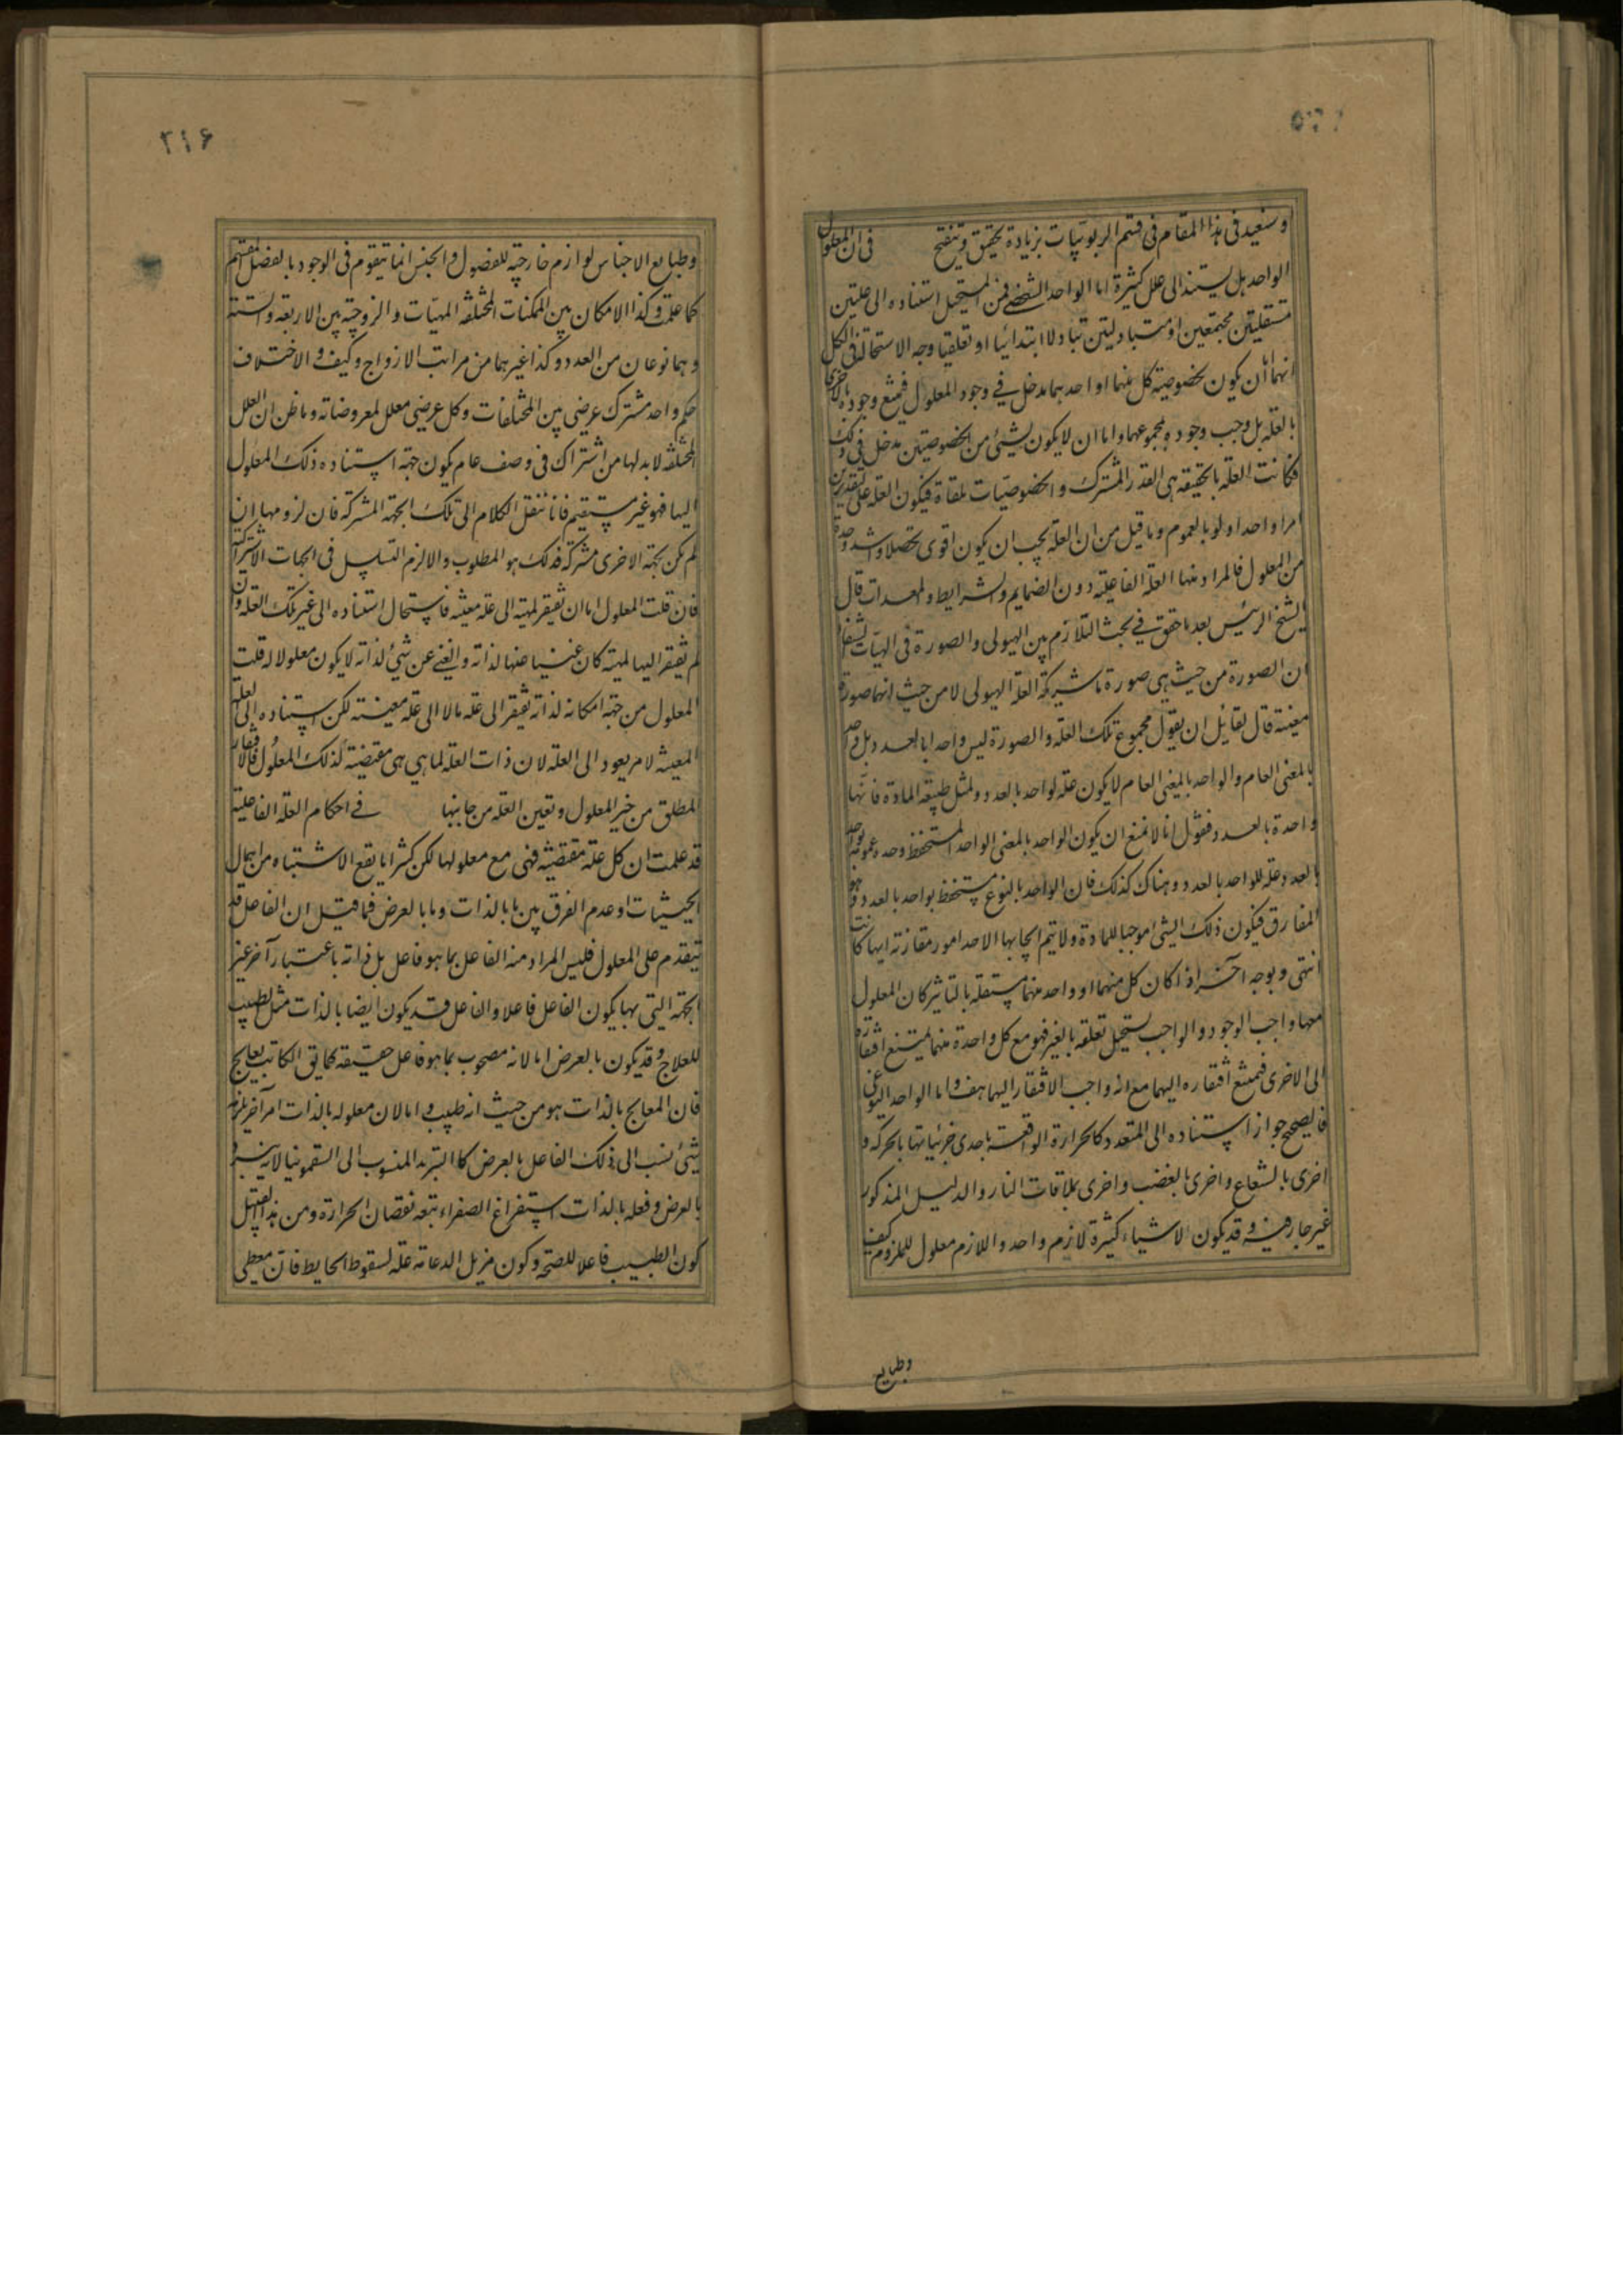 وسنعيد فى هذا المقام فى قسم الربوبيات بزيادة تحقيق وتنقيح فى ان المعلول
الواحد هل يستند الى علل كثيرة اما الواحد الشخصى فمن المستحيل استناده الى علتين
مستقلتين مجتمعين او متبادلتين تبادلا ابتدائيا او تعاقبيا وجه الاستحالة فى الكل
انهما اما ان يكون لخصوصية كل منهما او احدهما مدخل فى وجود المعلول فيمتنع وجوده بالاخرى
بالعله بل وجب وجوده بمجموعهما واما ان لا يكون لشئ من الخصوصيتين مدخل فى ذلك
فكانت العلة بالحقيقه هى القدر المشترك والخصوصيات ملقاة فيكون العله على التقديرين
امرا واحدا ولو بالعموم وما قيل من ان العلة يجب ان يكون اقوى تحصلا واشد وحدة
من المعلول فالمراد منها العلة الفاعلية دون الضمايم والشرايط والمعدات قال
الشيخ الرئيس بعد ما حقق فى بحث التلازم بين الهيولى والصورة فى الهيات الشفاء
ان الصورة من حيث هى صورة ما شريكة العلة الهيولى لا من حيث انها صورة
معينة قال لقائل ان يقول مجموع تلك العلة والصورة ليس واحدا بالعدد بل واحد
بالمعنى العام والواحد بالمعنى العام لا يكون علة لواحد بالعدد ولمثل طبيعة المادة فانها
واحدة بالعدد فنقول انا لا نمنع ان يكون الواحد بالمعنى الواحد المستحفظ وحدة عمومه بواحد
بالعدد علة للواحد بالعدد وهناك كذلك فان الواحد بالنوع مستحفظ بواحد بالعدد وهو
المفارق فيكون ذلك الشئ موجبا للمادة ولا يتم ايجابها الا احد امور مقارنة ايها كانت
انتهى وبوجه آخر اذا كان كل منهما او واحد منهما مستقلة بالتاثير كان المعلول
معها واجب الوجود والواجب يستحيل تعلقه بالغير فهو مع كل واحدة منهما يمتنع افتقاره
الى الاخرى فيمتنع افتقاره اليهما مع انه واجب الافتقار اليهما هف واما الواحد النوعى
فالصحيح جواز استناده الى المتعدد كالحرارة الواقعة باحدى جزئياتها بالحركة و
اخرى بالشعاع واخرى بالغضب واخرى بملاقات النار والدليل المذكور
غير جار فيه وقد يكون لاشياء كثيرة لازم واحد واللازم معلول للملزوم كيف
وطبايع
٢١۶
وطبايع الاجناس لوازم خارجية للفصول والجنس انما يتقوم فى الوجود بالفصل المقسم
كما علمت وكذا الامكان بين الممكنات المختلفة المهيات والزوجية بين الاربعة والستة
وهما نوعان من العدد وكذا غيرهما من مراتب الازواج وكيف والاختلاف
حكم واحد مشترك عرضى بين المختلفات وكل عرضى معلل لمعروضاته وما ظن ان العلل
المختلفة لابد لها من اشتراك فى وصف عام يكون جهة استناده ذلك المعلول
اليها فهو غير مستقيم فانا ننقل الكلام الى تلك الجهة المشتركة فان لزومها ان
لم يكن بجهة الاخرى مشتركة فذلك هو المطلوب والا لزم التسلسل فى الجهات الاشتراكية
فان قلت المعلول اما ان تفتقر لمهيته الى علة معينة فاستحال استناده الى غير تلك العلة وان
لم تفتقر اليها لمهيته كان غنيا عنها لذاته والغنى عن شئ لذاته لا يكون معلولا له قلت
المعلول من جهة امكانه لذاته تفتقر الى علة ما لا الى علة معينة لكن استناده الى العلة
المعينة لامر يعود الى العلة لان ذات العلة لما هى هى مقتضية لذلك المعلول فالافتقار
المطلق من حيز المعلول وتعين العلة من جانبها فى احكام العلة الفاعلية
قد علمت ان كل علة مقتضية فهى مع معلولها لكن كثيرا ما يقع الاشتباه من اهمال
الحيثيات او عدم الفرق بين ما بالذات وما بالعرض فما قيل ان الفاعل قد
يتقدم على المعلول فليس المراد منه الفاعل بما هو فاعل بل ذاته باعتبار آخر غير
الجهة التى بها يكون الفاعل فاعلا والفاعل قد يكون ايضا بالذات مثل الطبيب
للعلاج وقد يكون بالعرض اما لانه مصحوب بما هو فاعل حقيقة كما يق الكاتب يعالج
فان المعالج بالذات هو من حيث انه طبيب واما لان معلوله بالذات امر آخر يلزمه
شئ نسب الى ذلك الفاعل بالعرض كالتبريد المنسوب الى السقمونيا لانه يبرد
بالعرض وفعله بالذات استفراغ الصفراء يتبعه نقصان الحرارة ومن هذا القبيل
كون الطبيب فاعلا للصحة وكون مزيل الدعامة علة لسقوط الحايط فان معطى